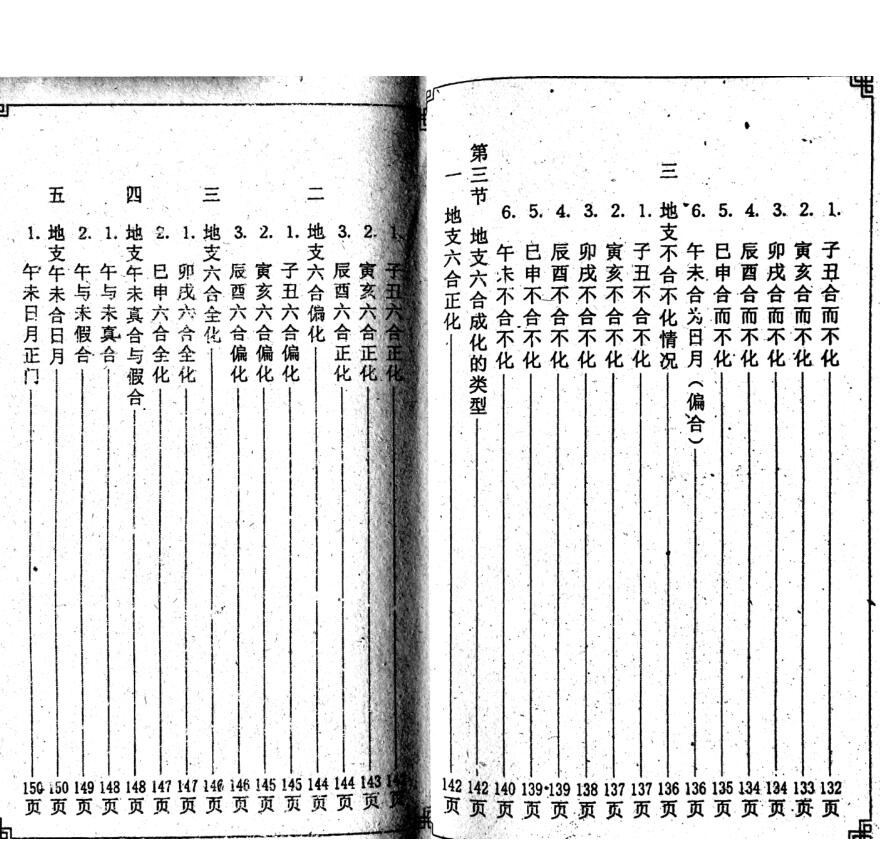 1. 子丑合而不化 132页
2. 寅亥合而不化 133页
3. 卯戌合而不化 134页
4. 辰酉合而不化 134页
5. 巳申合而不化 135页
6. 午未合为日月（偏合） 136页
三 地支不合不化情况 136页
1. 子丑不合不化 137页
2. 寅亥不合不化 137页
3. 卯戌不合不化 138页
4. 辰酉不合不化 139页
5. 巳申不合不化 139页
6. 午未不合不化 140页
第三节 地支六合成化的类型 142页
一 地支六合正化 142页
1. 子丑六合正化 页
2. 寅亥六合正化 143页
3. 辰酉六合正化 144页
二 地支六合偏化 144页
1. 子丑六合偏化 145页
2. 寅亥六合偏化 145页
3. 辰酉六合偏化 146页
三 地支六合全化 146页
1. 卯戌六合全化 147页
2. 巳申六合全化 147页
四 地支午未真合与假合 148页
1. 午与未真合 148页
2. 午与未假合 149页
五 地支午未合日月 150页
1. 午未日月正门 150页